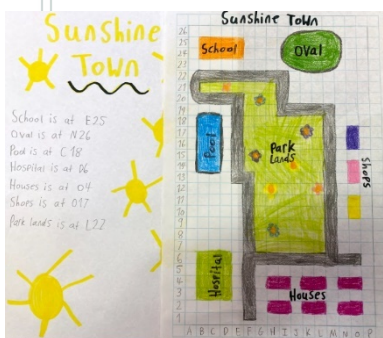 Sunshine
Town
School is at E25
Oval is at N26
Pool is at C18
Hospital is at D6
Houses is at O4
Shops is at O17
Park lands is at L22
Sunshine Town
School
Oval
Pool
Park
Lands
Shops
Hospital
Houses
26
25
24
23
22
21
20
19
18
17
16
15
14
13
12
11
10
9
8
7
6
5
4
3
2
1
A B C D E F G H I J K L M N O P